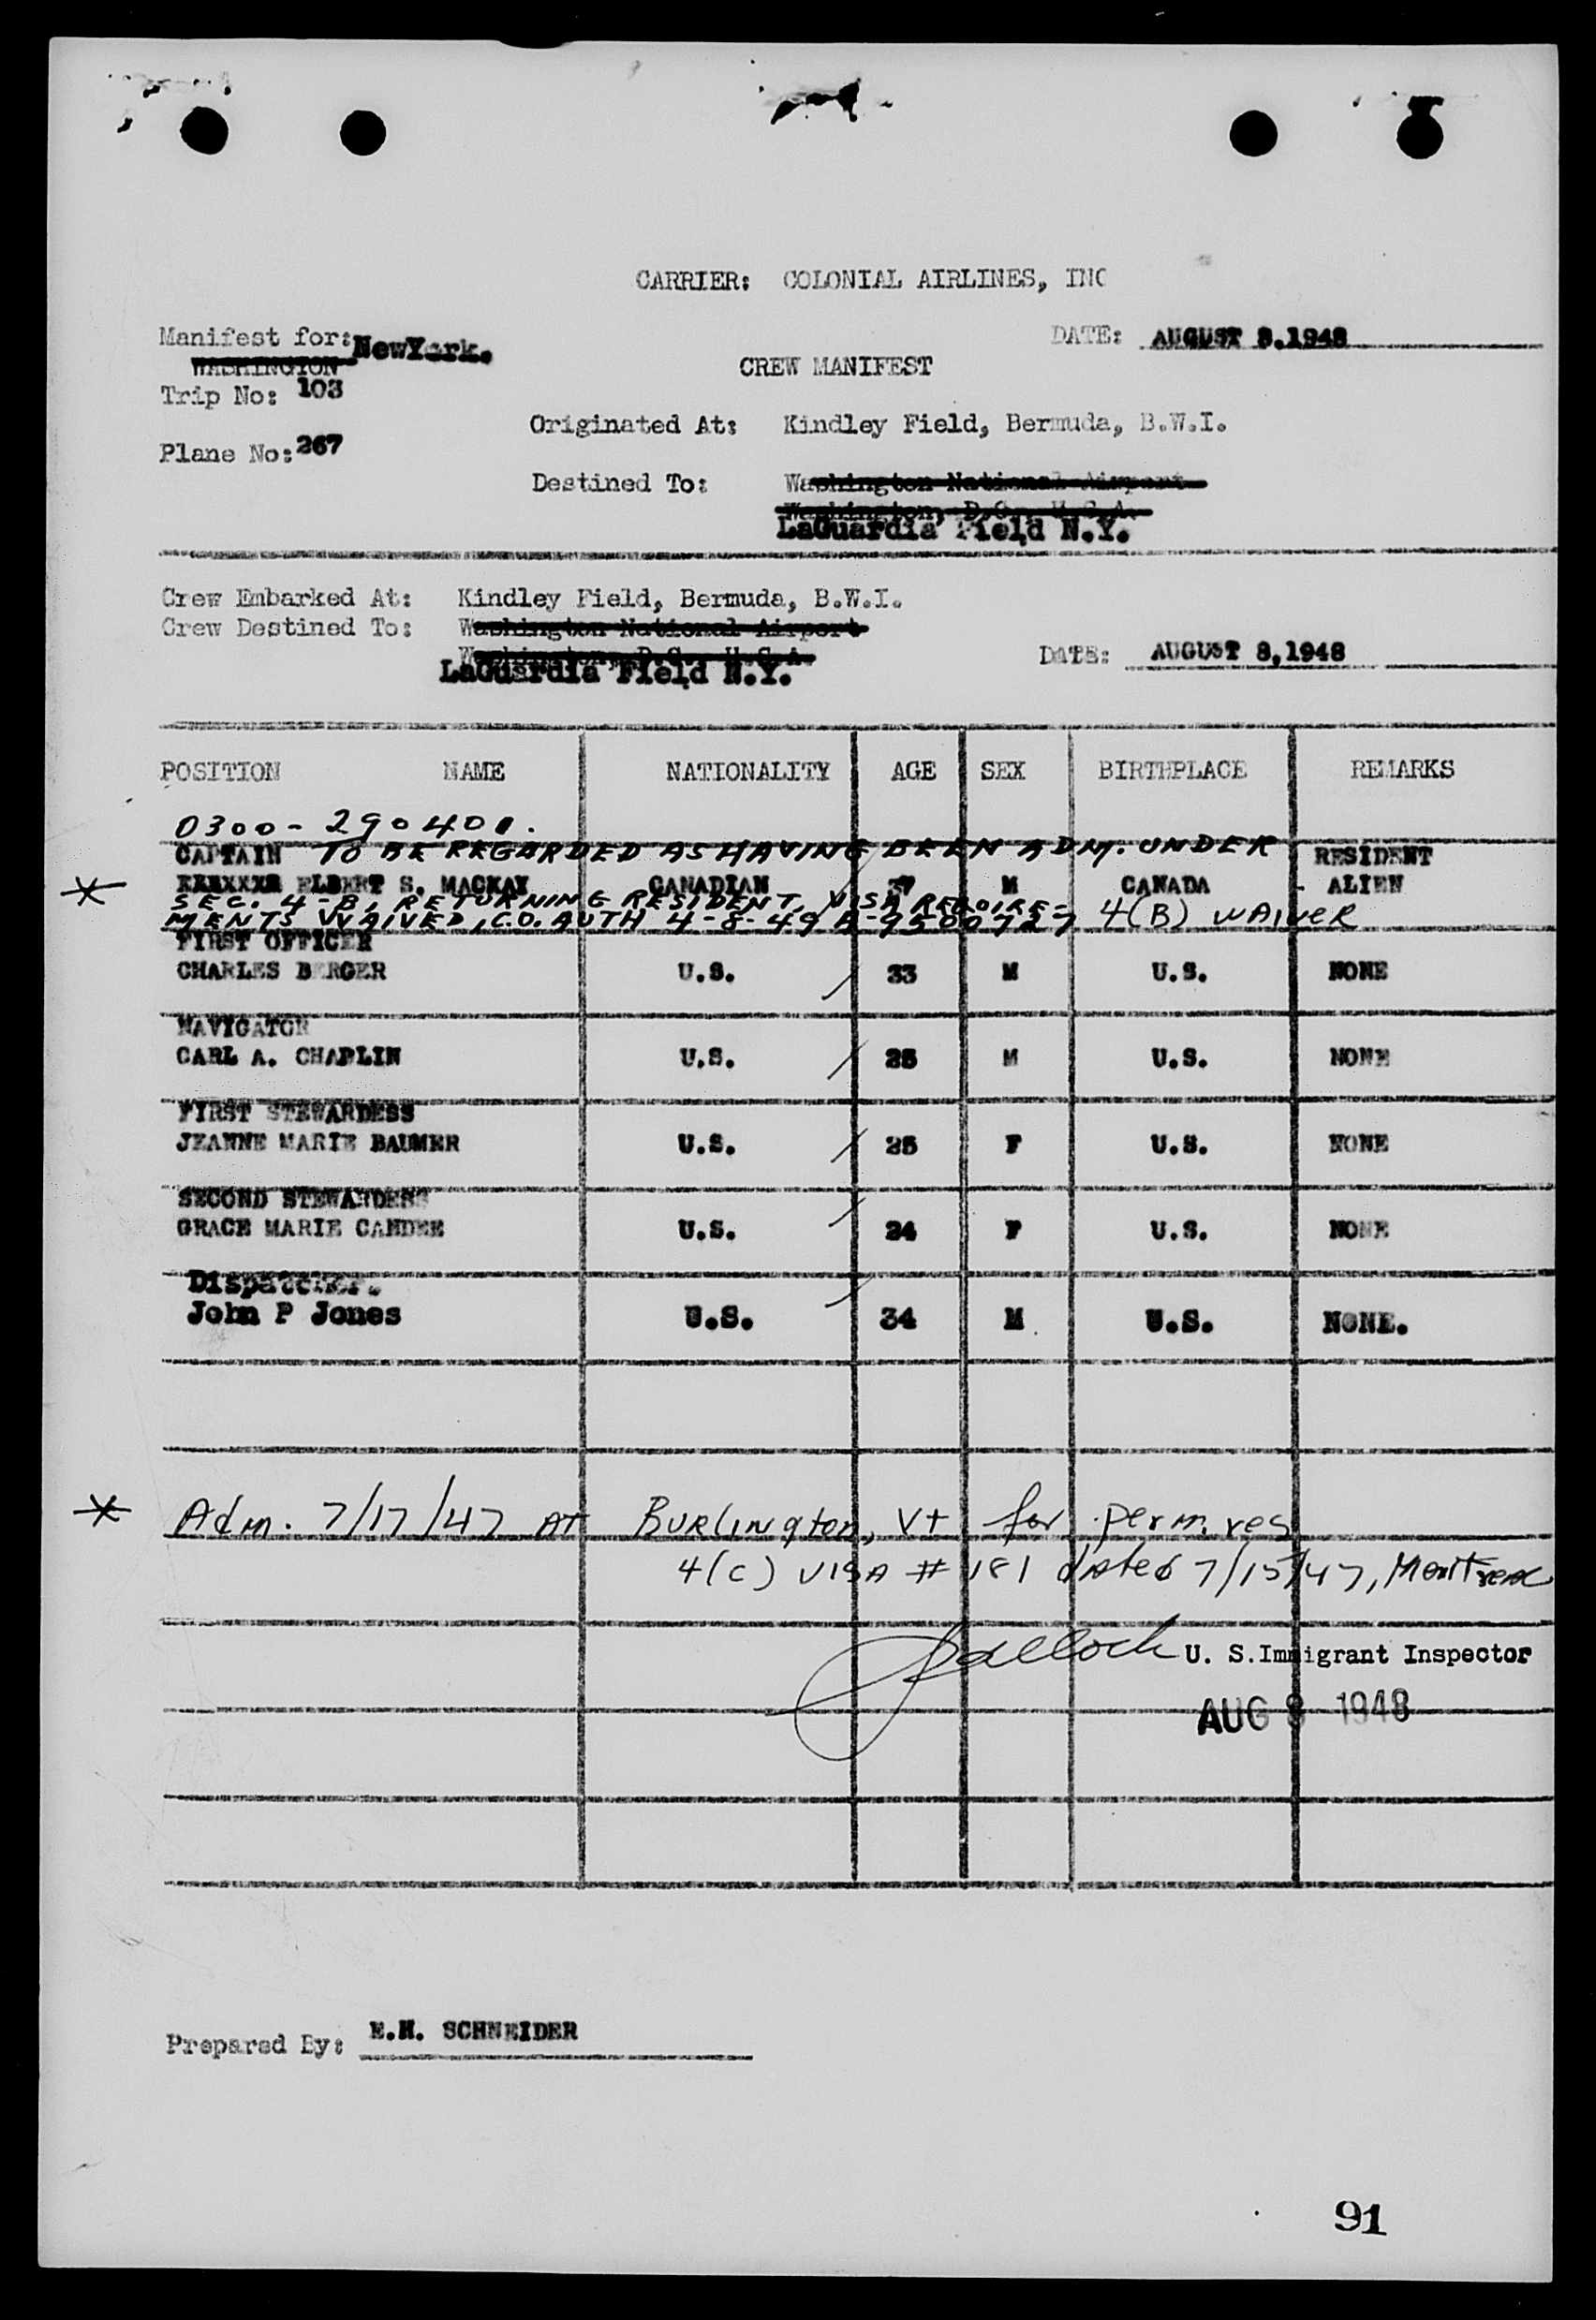 CARRIER: COLONIAL AIRLINES, INC
Manifest for: NewYork.
WASHINGTON
DATE: AUGUST 8.1948
CREW MANIFEST
Trip No: 103
Originated At: Kindley Field, Bermuda, B.W.I.
Plane No: 267
Destined To: Washington National Airport
Washington, D.C., U.S.A.
LaGuardia Field N.Y.
Crew Embarked At: Kindley Field, Bermuda, B.W.I.
Crew Destined To: Washington National Airport
Washington, D.C. U.S.A.
LaGuardia Field N.Y.
DATE: AUGUST 8,1948
POSITION NAME NATIONALITY AGE SEX BIRTHPLACE REMARKS
0300-290400.
CAPTAIN TO BE REGARDED AS HAVING BEEN ADM. UNDER RESIDENT
ELBERT S. MACKAY CANADIAN M CANADA ALIEN
SEC. 4-B, RETURNING RESIDENT, VISA REQUIRE-
MENTS WAIVED, C.O. AUTH 4-8-49 A-9500727 4(B) WAIVER
FIRST OFFICER
CHARLES BERGER U.S. 33 M U.S. NONE
NAVIGATOR
CARL A. CHAPLIN U.S. 25 M U.S. NONE
FIRST STEWARDESS
JEANNE MARIE BAUMER U.S. 25 F U.S. NONE
SECOND STEWARDESS
GRACE MARIE CANDEE U.S. 24 F U.S. NONE
Dispatcher.
John P Jones U.S. 34 M U.S. NONE.
Adm. 7/17/47 AT Burlington, Vt for perm. res
4(c) VISA # 181 dated 7/15/47, Montreal
U. S. Immigrant Inspector
AUG 8 1948
Prepared By: E.H. SCHNEIDER
91